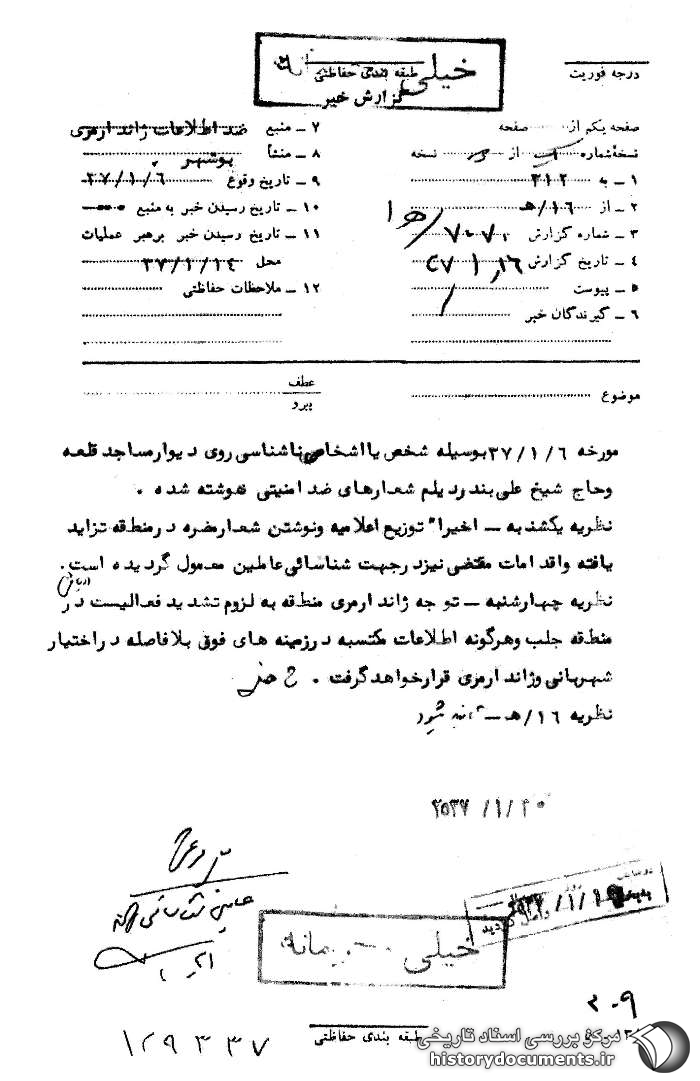 خیلی محرمانه
طبقه بندی حفاظتی
گزارش خبر
درجه فوریت
صفحه یکم از صفحه
نسخهٔ شماره از نسخه
۱ ـ به ۳۱۲
۲ ـ از ۱۶/هـ
۳ ـ شماره گزارش ۷۰۷۰/هـ ۱
۴ ـ تاریخ گزارش
۵ ـ پیوست
۶ ـ گیرندگان خبر
۷ ـ منبع ضد اطلاعات ژاندارمری
۸ ـ منشأ بوشهر
۹ ـ تاریخ وقوع ۳۷/۱/۶
۱۰ ـ تاریخ رسیدن خبر به منبع
۱۱ ـ تاریخ رسیدن خبر برهبر عملیات
محل ۳۷/۱/۱۴
۱۲ ـ ملاحظات حفاظتی
موضوع
عطف
پیرو
مورخه ۳۷/۱/۶ بوسیله شخص یا اشخاص ناشناسی روی دیوار مساجد قلعه
و حاج شیخ علی بندر دیلم شعارهای ضد امنیتی نوشته شده .
نظریه یکشنبه ـ اخیرا" توزیع اعلامیه ونوشتن شعار مضره در منطقه تزاید
یافته واقدامات مقتضی نیز در جهت شناسائی عاملین معمول گردیده است.
نظریه چهارشنبه ـ توجه ژاندارمری منطقه به لزوم تشدید فعالیت در
منطقه جلب وهرگونه اطلاعات مکتسبه در زمینه های فوق بلافاصله در اختیار
شهربانی وژاندارمری قرار خواهد گرفت .
نظریه ۱۶/هـ ـ
۲۵۳۷/۱/۲۰
خیلی محرمانه
طبقه بندی حفاظتی
۳۰۹
۱۲۹۳۳۷
مرکز بررسی اسناد تاریخی
historydocuments.ir